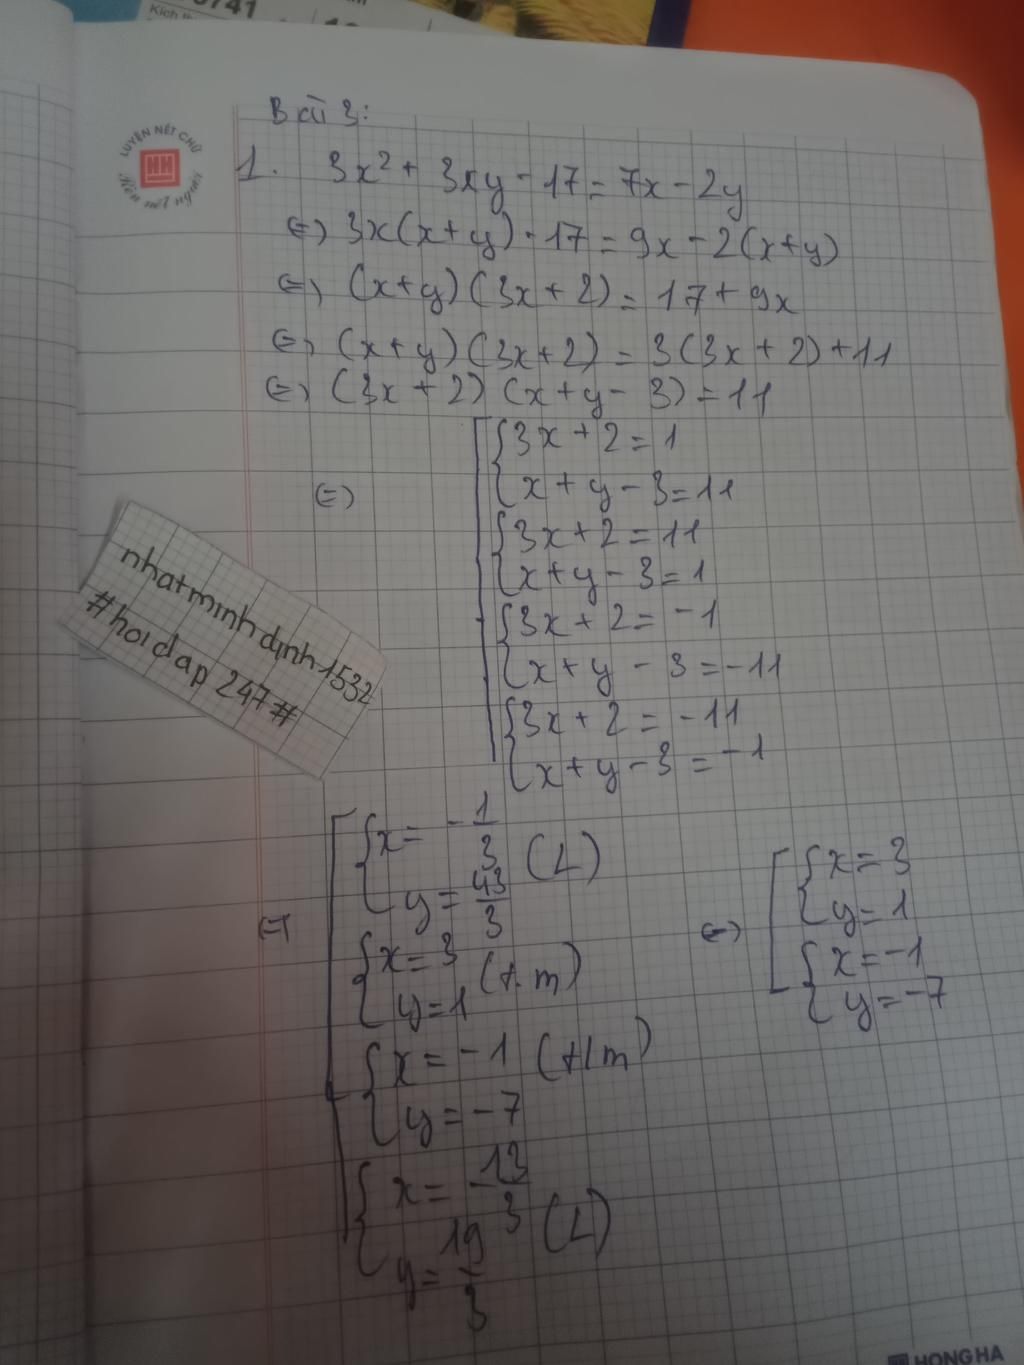 3741
Kích th
Bài 3:
LUYỆN NÉT CHỮ
HH
Rèn nết người
1. 3x² + 3xy - 17 = 7x - 2y
⇔ 3x(x+y) - 17 = 9x - 2(x+y)
⇔ (x+y)(3x+2) = 17 + 9x
⇔ (x+y)(3x+2) = 3(3x+2)+11
⇔ (3x+2)(x+y-3) = 11
⇔ [ { 3x + 2 = 1
x + y - 3 = 11
{ 3x + 2 = 11
x + y - 3 = 1
{ 3x + 2 = -1
x + y - 3 = -11
{ 3x + 2 = -11
x + y - 3 = -1
nhatminhdinh1532
#hoidap247#
⇔ [ { x = -1/3
y = 43/3 (L)
{ x = 3
y = 1 (t.m)
{ x = -1 (t/m)
y = -7
{ x = -13/3
y = 19/3 (L)
⇔ [ { x = 3
y = 1
{ x = -1
y = -7
HONG HA